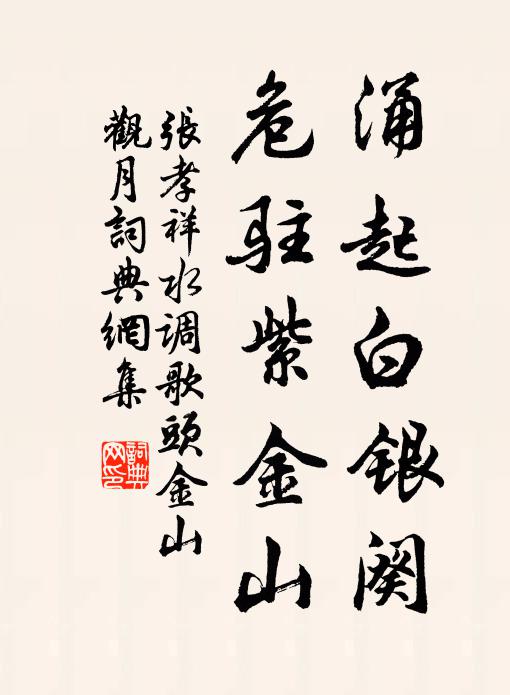 涌起白银阙
危驻紫金山
張孝祥水调歌頭金山
觀月詞典網集
詞典
网印